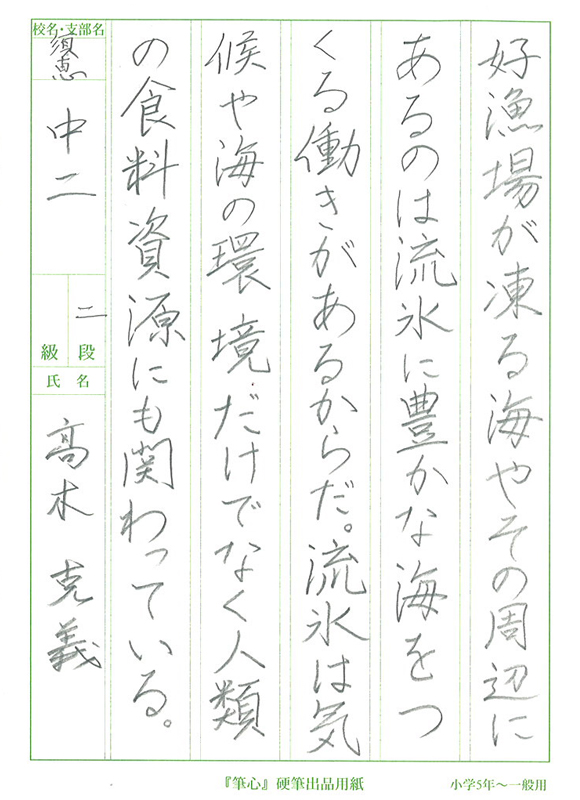 好漁場が凍る海やその周辺に
あるのは流氷に豊かな海をつ
くる働きがあるからだ。流氷は気
候や海の環境だけでなく人類
の食料資源にも関わっている。
校名・支部名
須恵
中二
二
段
級
氏名
高木 克義
『筆心』硬筆出品用紙
小学5年〜一般用